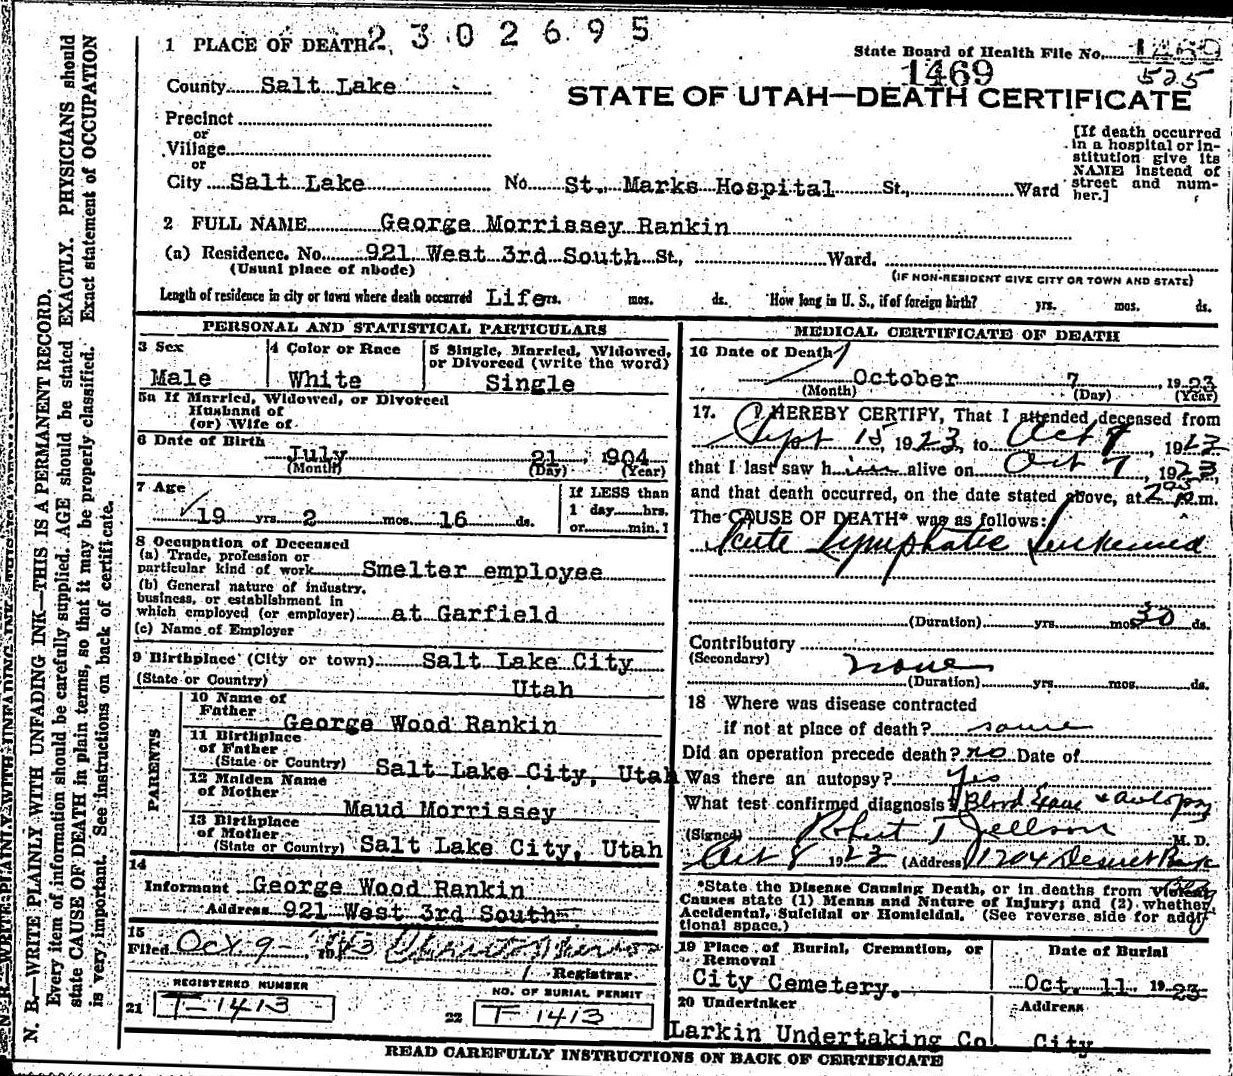 2302695
1 PLACE OF DEATH
State Board of Health File No. 1469
1469 525
County Salt Lake
STATE OF UTAH—DEATH CERTIFICATE
Precinct
or
Village
or
City Salt Lake No. St. Marks Hospital St., Ward
[If death occurred in a hospital or institution give its NAME instead of street and number.]
2 FULL NAME George Morrissey Rankin
(a) Residence. No. 921 West 3rd South St., Ward.
(Usual place of abode) (IF NON-RESIDENT GIVE CITY OR TOWN AND STATE)
Length of residence in city or town where death occurred Life yrs. mos. ds. How long in U. S., if of foreign birth? yrs. mos. ds.
PERSONAL AND STATISTICAL PARTICULARS
3 Sex
Male
4 Color or Race
White
5 Single, Married, Widowed,
or Divorced (write the word)
Single
5a If Married, Widowed, or Divorced
Husband of
(or) Wife of
6 Date of Birth
July 21, 1904
(Month) (Day) (Year)
7 Age
19 yrs. 2 mos. 16 ds.
If LESS than
1 day hrs.
or min.?
8 Occupation of Deceased
(a) Trade, profession or
particular kind of work Smelter employee
(b) General nature of industry,
business, or establishment in
which employed (or employer) at Garfield
(c) Name of Employer
9 Birthplace (City or town) Salt Lake City
(State or Country) Utah
PARENTS
10 Name of
Father
George Wood Rankin
11 Birthplace
of Father
(State or Country) Salt Lake City, Utah
12 Maiden Name
of Mother
Maud Morrissey
13 Birthplace
of Mother
(State or Country) Salt Lake City, Utah
14
Informant George Wood Rankin
Address 921 West 3rd South
15
Filed Oct 9- 1923
Registrar
REGISTERED NUMBER
21 T-1413
NO. OF BURIAL PERMIT
22 T 1413
MEDICAL CERTIFICATE OF DEATH
16 Date of Death
October 7, 1923
(Month) (Day) (Year)
17. I HEREBY CERTIFY, That I attended deceased from
Sept 15, 1923, to Oct 7, 1923
that I last saw him alive on Oct 7, 1923,
and that death occurred, on the date stated above, at 2 05 p.m.
The CAUSE OF DEATH* was as follows:
Acute Lymphatic Leukemia
(Duration) yrs. mos. 30 ds.
Contributory
(Secondary) none
(Duration) yrs. mos. ds.
18 Where was disease contracted
if not at place of death? same
Did an operation precede death? no Date of
Was there an autopsy? Yes
What test confirmed diagnosis? Blood Exam & autopsy
(Signed) Robert T Jellson M. D.
Oct 8 1923 (Address) 1204 Deseret Bank
*State the Disease Causing Death, or in deaths from Violent
Causes state (1) Means and Nature of Injury; and (2) whether
Accidental, Suicidal or Homicidal. (See reverse side for addi-
tional space.)
19 Place of Burial, Cremation, or
Removal
City Cemetery.
Date of Burial
Oct. 11, 1923
20 Undertaker
Larkin Undertaking Co
Address
City
READ CAREFULLY INSTRUCTIONS ON BACK OF CERTIFICATE
N. B.—WRITE PLAINLY WITH UNFADING INK—THIS IS A PERMANENT RECORD.
Every item of information should be carefully supplied. AGE should be stated EXACTLY. PHYSICIANS should
state CAUSE OF DEATH in plain terms, so that it may be properly classified. Exact statement of OCCUPATION
is very important. See instructions on back of certificate.